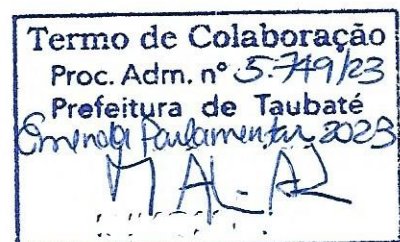 Termo de Colaboração
Proc. Adm. nº 5.749/23
Prefeitura de Taubaté
Emenda Parlamentar 2023